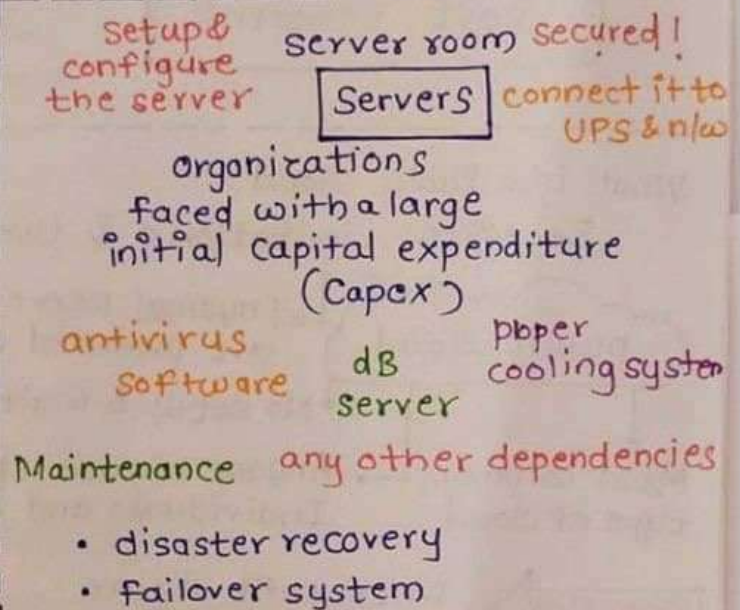 setup & configure the server
server room secured!
Servers
connect it to UPS & n/w
organizations
faced with a large
initial capital expenditure
(Capex)
antivirus software
dB server
pboper cooling system
Maintenance any other dependencies
• disaster recovery
• failover system